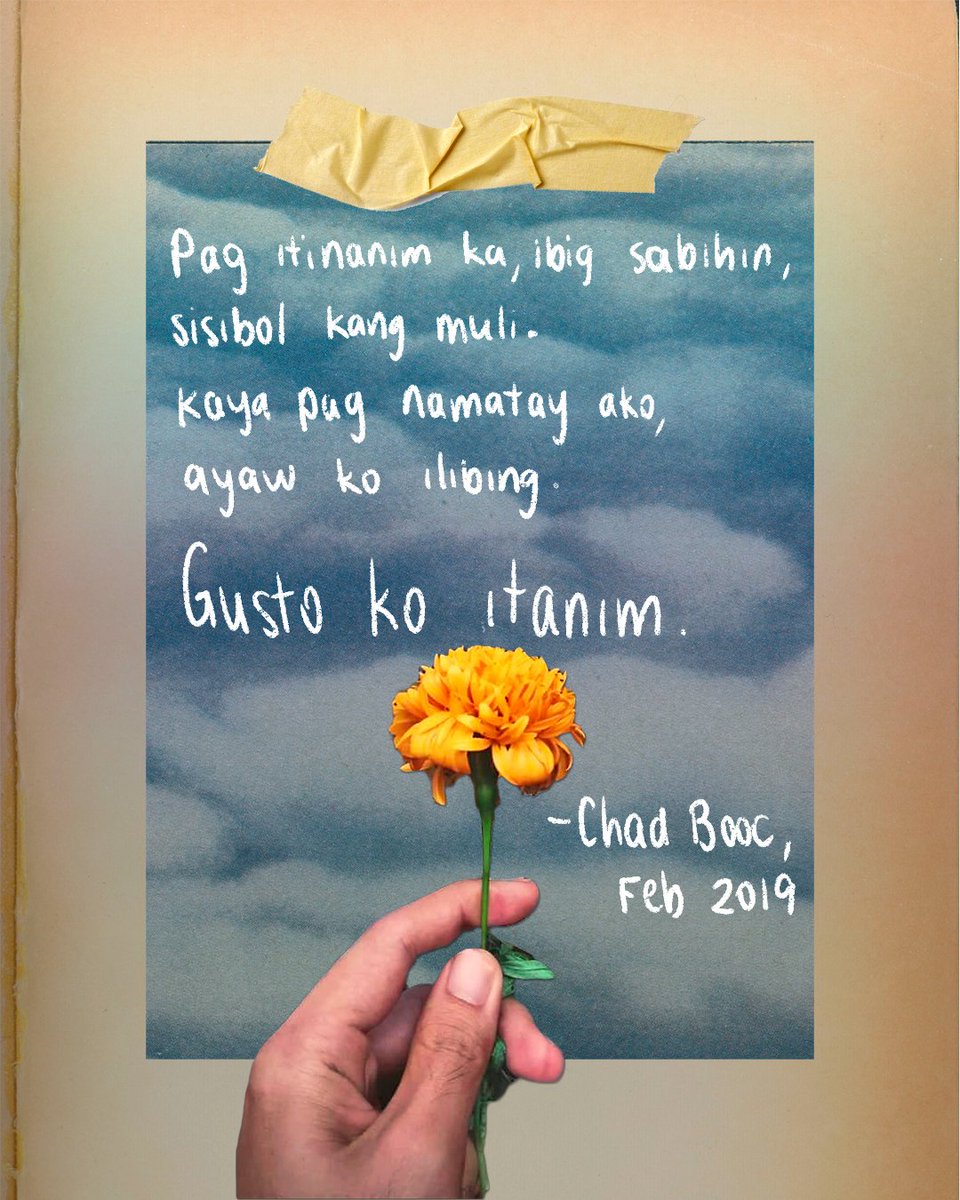 Pag itinanim ka, ibig sabihin,
sisibol kang muli.
kaya pag namatay ako,
ayaw ko ilibing.
Gusto ko itanim.
-Chad Booc,
Feb 2019